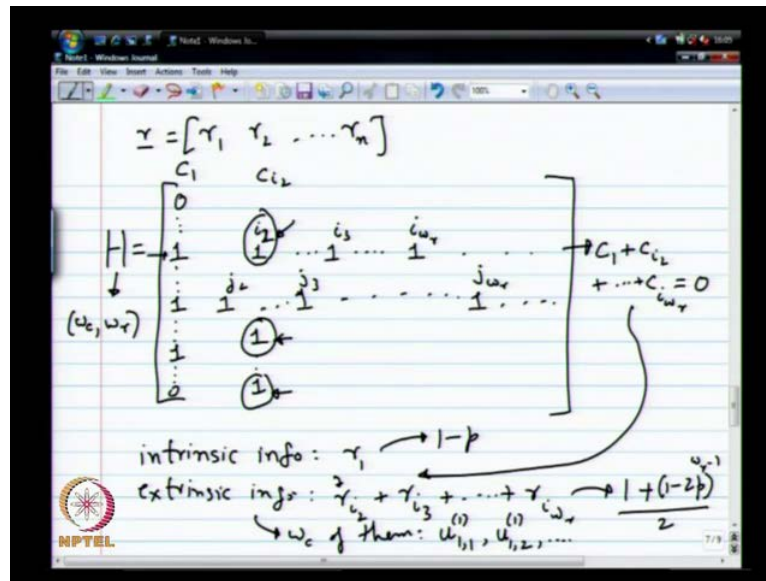 Note1 - Windows Jo...
Note1 - Windows Journal
16:05
File Edit View Insert Actions Tools Help
100%
r = [r₁ r₂ .... rₙ]
C₁ Cᵢ₂
0
⋮ i₂ i₃ i_wᵣ
H = → 1 1 ... 1 .... 1 → C₁ + Cᵢ₂
+ ... + C_i_wᵣ = 0
j₂ j₃ j_wᵣ
1 1 ... 1 - - - - - 1 ....
(w_c, wᵣ)
⋮ 1
1
⋮ 1
0
intrinsic info: r₁ → 1-p
extrinsic info: rᵢ₂ + rᵢ₃ + .... + r_i_wᵣ → (1 + (1-2p)^(wᵣ-1))/2
↳ w_c of them: u₁,₁⁽¹⁾, u₁,₂⁽¹⁾, ....
NPTEL
7/9